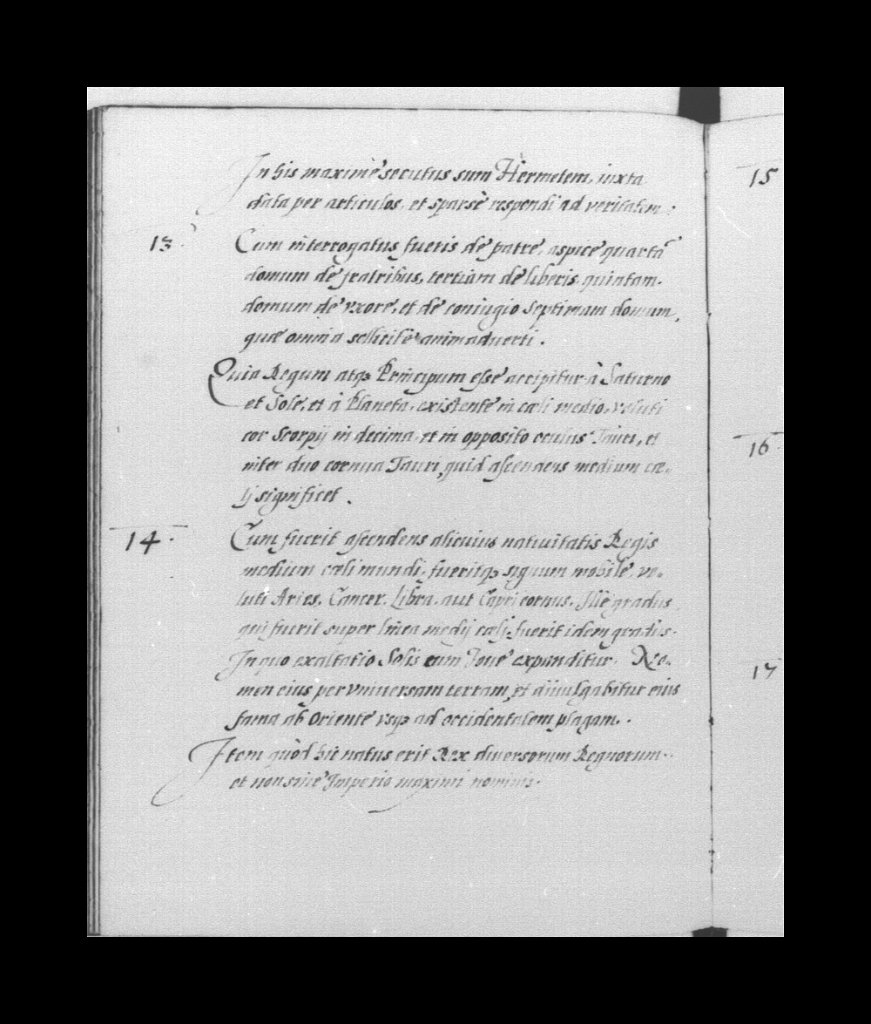 In his maximè secutus sum Hermetem, iuxta
data per articulos, et sparsè respondi ad veritatem:
13 Cum interrogatus fueris de patre, aspice quartã
domum de fratribus, tertiam de liberis quintam.
domum de vxore, et de coniugio septimam domum,
quæ omnia sollicitè animaduerti.
Quia Regum atq₃ Principum esse accipitur à Saturno
et Sole, et à Planeta, existente in cæli medio, veluti
cor Scorpij in decima, et in opposito oculus Tauri, et
inter duo cornua Tauri, quid ascendens medium cæ-
lj significet.
14. Cum fuerit ascendens alicuius natiuitatis Regis
medium cæli mundi, fueritq₃ signum mobile, ve-
luti Aries, Cancer, Libra, aut Capricornus. Ille gradus
qui fuerit super linea medij cælj, fuerit idem gradus.
In quo exaltatio Solis cum Ioue expanditur. No-
men eius per vniuersam terram, et diuulgabitur eius
fama ab Oriente vsq₃ ad occidentalem plagam.
Item quòd hic natus erit Rex diuersorum Regnorum.
et non sine Imperio maximi nominis.
15
16
17